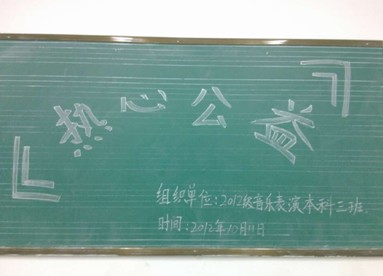 热心公益
组织单位:2012级音乐表演本科三班.
时间:2012年10月11日